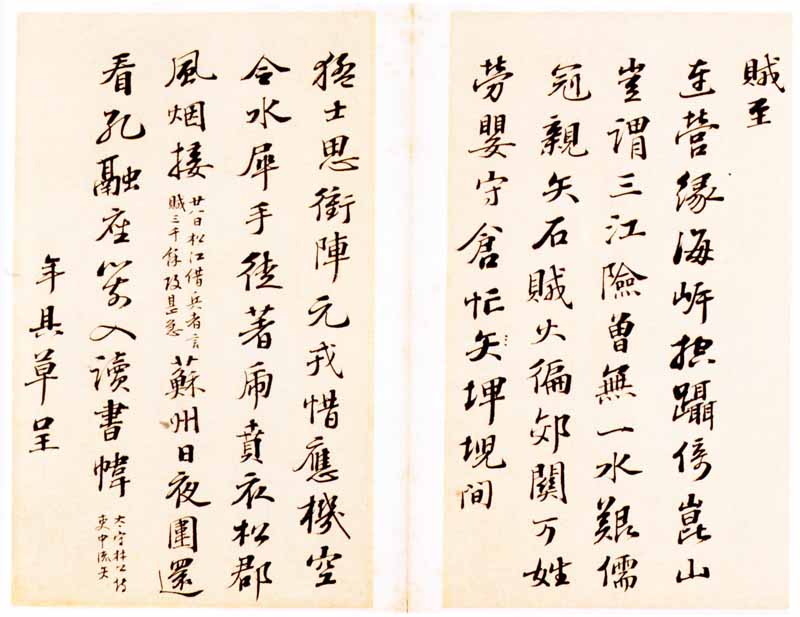 賊至
連營緣海岍控躡倚崑山
豈謂三江險曾無一水艱儒
冠親矢石賊火徧郊關万姓
勞嬰守倉忙矢埤堄間
猛士思銜陣元戎惜應機空
令水犀手徒著虎賁衣松郡
風烟接
廿八日松江借兵者言
賊三千餘攻甚急
蘇州日夜圍還
看孔融座箭入讀書幃
太守林公傍
吏中流矢
年具草呈